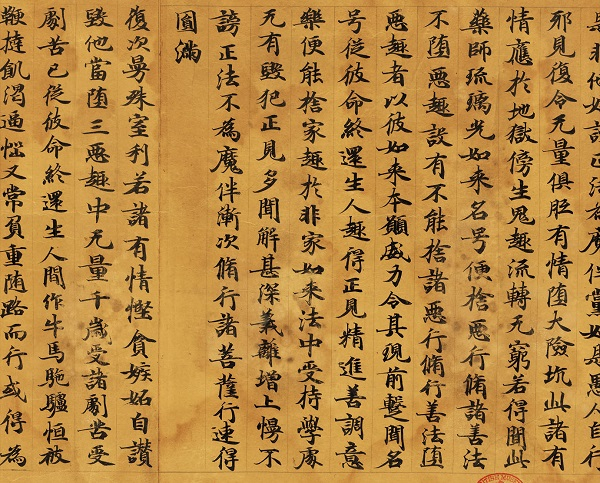 是非他嫌謗正法為魔伴黨如是愚人自行
邪見復令无量俱胝有情墮大險坑此諸有
情應於地獄傍生鬼趣流轉无窮若得聞此
藥師琉璃光如來名号便捨惡行脩諸善法
不墮惡趣設有不能捨諸惡行脩行善法墮
惡趣者以彼如來本願威力令其現前蹔聞名
号從彼命終還生人趣得正見精進善調意
樂便能捨家趣於非家如來法中受持學處
无有毀犯正見多聞解甚深義離增上慢不
謗正法不為魔伴漸次脩行諸菩薩行速得
圓滿
復次曼殊室利若諸有情慳貪嫉妬自讚
毀他當墮三惡趣中无量千歲受諸劇苦受
劇苦已從彼命終還生人間作牛馬駞驢恒被
鞭撻飢渴逼惱又常負重隨路而行或得為